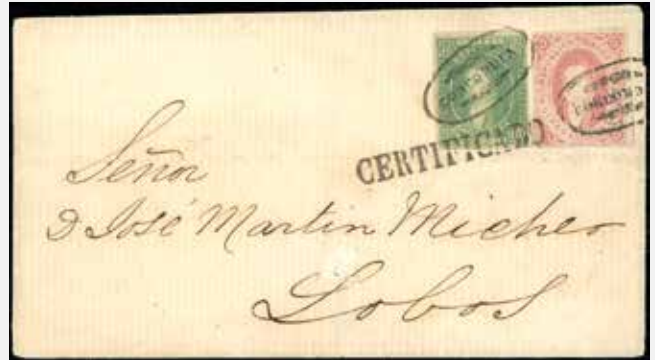 CERTIFICADO
Señor
D José Martin Micheo
Lobos